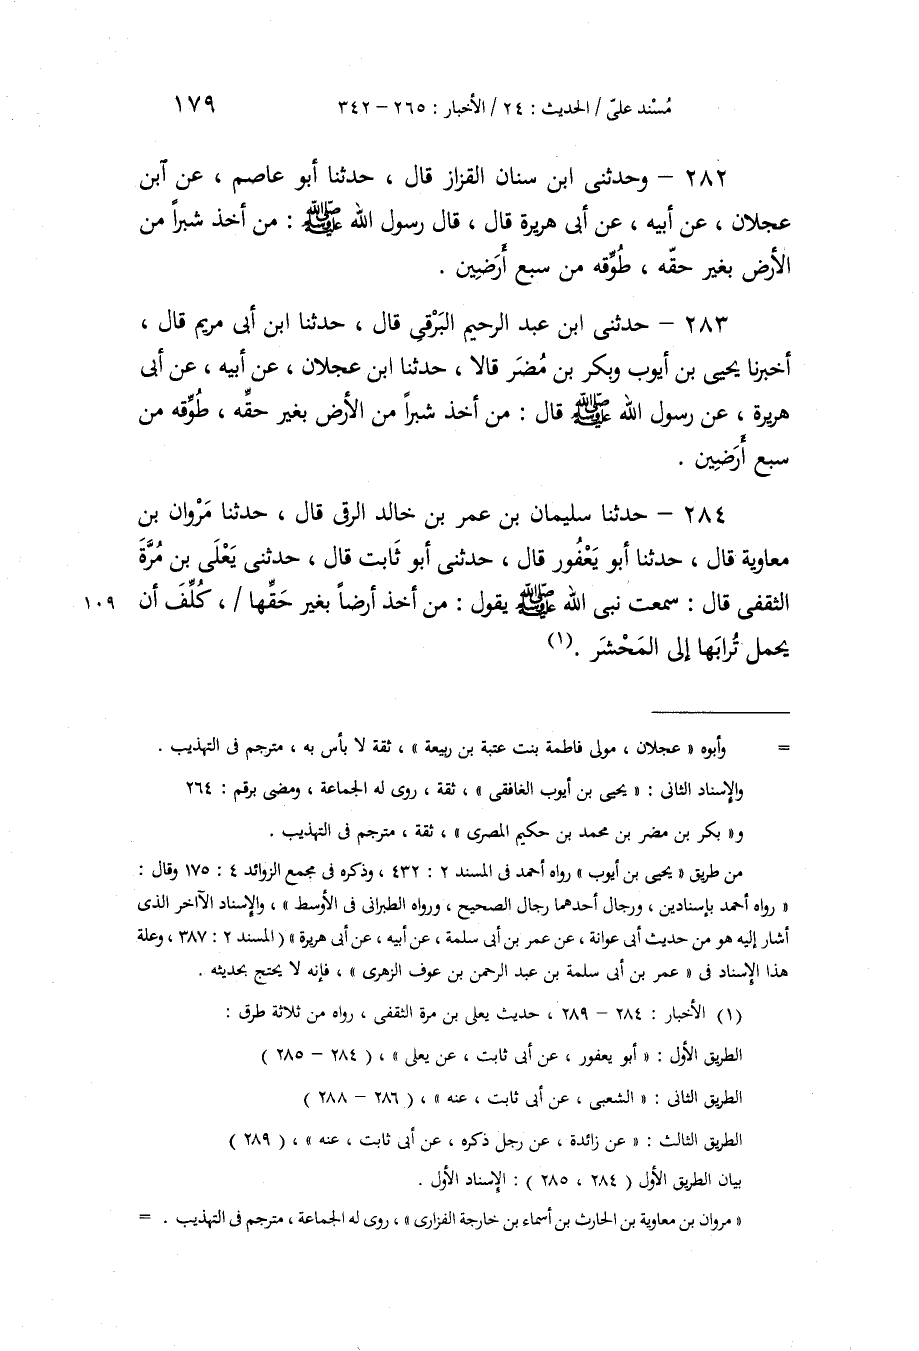 مُسْند علىّ / الحديث : ٢٤ / الأخبار : ٢٦٥ – ٣٤٢ ١٧٩
٢٨٢ – وحدثنى ابن سنان القزاز قال ، حدثنا أبو عاصم ، عن ٱبن
عجلان ، عن أبيه ، عن أبى هريرة قال ، قال رسول الله ﷺ : من أخذ شبراً من
الأرض بغير حقّه ، طُوِّقه من سبع أَرَضِين .
٢٨٣ – حدثنى ابن عبد الرحيم البَرْقى قال ، حدثنا ابن أبى مريم قال ،
أخبرنا يحيى بن أيوب وبكر بن مُضَر قالا ، حدثنا ابن عجلان ، عن أبيه ، عن أبى
هريرة ، عن رسول الله ﷺ قال : من أخذ شبراً من الأرض بغير حقِّه ، طُوِّقه من
سبع أَرَضِين .
٢٨٤ – حدثنا سليمان بن عمر بن خالد الرقى قال ، حدثنا مَرْوان بن
معاوية قال ، حدثنا أبو يَعْفُور قال ، حدثنى أبو ثَابت قال ، حدثنى يَعْلَى بن مُرَّةَ
الثقفى قال : سمعت نبى الله ﷺ يقول : من أخذ أرضاً بغير حَقِّها / ، كُلِّفَ أن ١٠٩
يحمل تُرابَها إلى المَحْشَر .(١)
= وأبوه « عجلان ، مولى فاطمة بنت عتبة بن ربيعة » ، ثقة لا بأس به ، مترجم فى التهذيب .
والإسناد الثانى : « يحيى بن أيوب الغافقى » ، ثقة ، روى له الجماعة ، ومضى برقم : ٢٦٤
و« بكر بن مضر بن محمد بن حكيم المصرى » ، ثقة ، مترجم فى التهذيب .
من طريق « يحيى بن أيوب » رواه أحمد فى المسند ٢ : ٤٣٢ ، وذكره فى مجمع الزوائد ٤ : ١٧٥ وقال :
« رواه أحمد بإسنادين ، ورجال أحدهما رجال الصحيح ، ورواه الطبرانى فى الأوسط » ، والإسناد الآاخر الذى
أشار إليه هو من حديث أبى عوانة ، عن عمر بن أبى سلمة ، عن أبيه ، عن أبى هريرة » ( المسند ٢ : ٣٨٧ ، وعلة
هذا الإسناد فى « عمر بن أبى سلمة بن عبد الرحمن بن عوف الزهرى » ، فإنه لا يحتج بحديثه .
(١) الأخبار : ٢٨٤ – ٢٨٩ ، حديث يعلى بن مرة الثقفى ، رواه من ثلاثة طرق :
الطريق الأول : « أبو يعفور ، عن أبى ثابت ، عن يعلى » ، ( ٢٨٤ – ٢٨٥ )
الطريق الثانى : « الشعبى ، عن أبى ثابت ، عنه » ، ( ٢٨٦ – ٢٨٨ )
الطريق الثالث : « عن زائدة ، عن رجل ذكره ، عن أبى ثابت ، عنه » ، ( ٢٨٩ )
بيان الطريق الأول ( ٢٨٤ ، ٢٨٥ ) : الإسناد الأول .
« مروان بن معاوية بن الحارث بن أسماء بن خارجة الفزارى » ، روى له الجماعة ، مترجم فى التهذيب . =